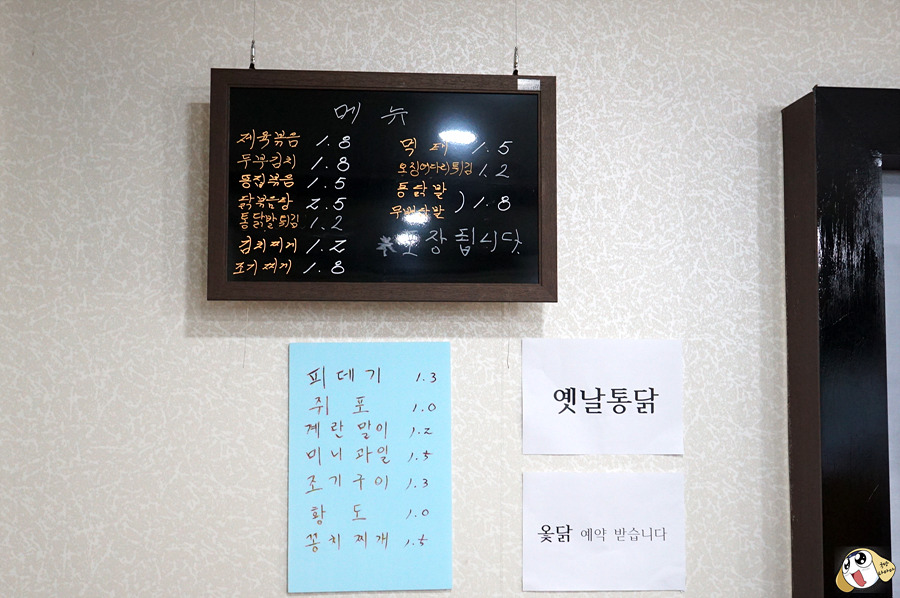 메 뉴
제육볶음 1.8
두부김치 1.8
똥집볶음 1.5
닭볶음탕 2.5
통닭발튀김 1.2
김치찌게 1.2
조기찌게 1.8
먹태 1.5
오징어다리튀김 1.2
통닭발
무뼈닭발 ) 1.8
포장됩니다
피데기 1.3
쥐포 1.0
계란말이 1.2
미니과일 1.5
조기구이 1.3
황도 1.0
꽁치찌개 1.5
옛날통닭
옻닭 예약 받습니다